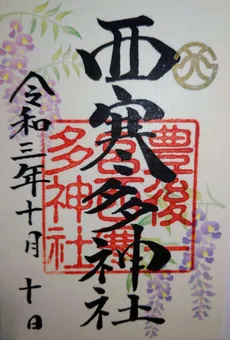 西寒多神社
豊後
一宮西寒
多神社
令和三年十月十日